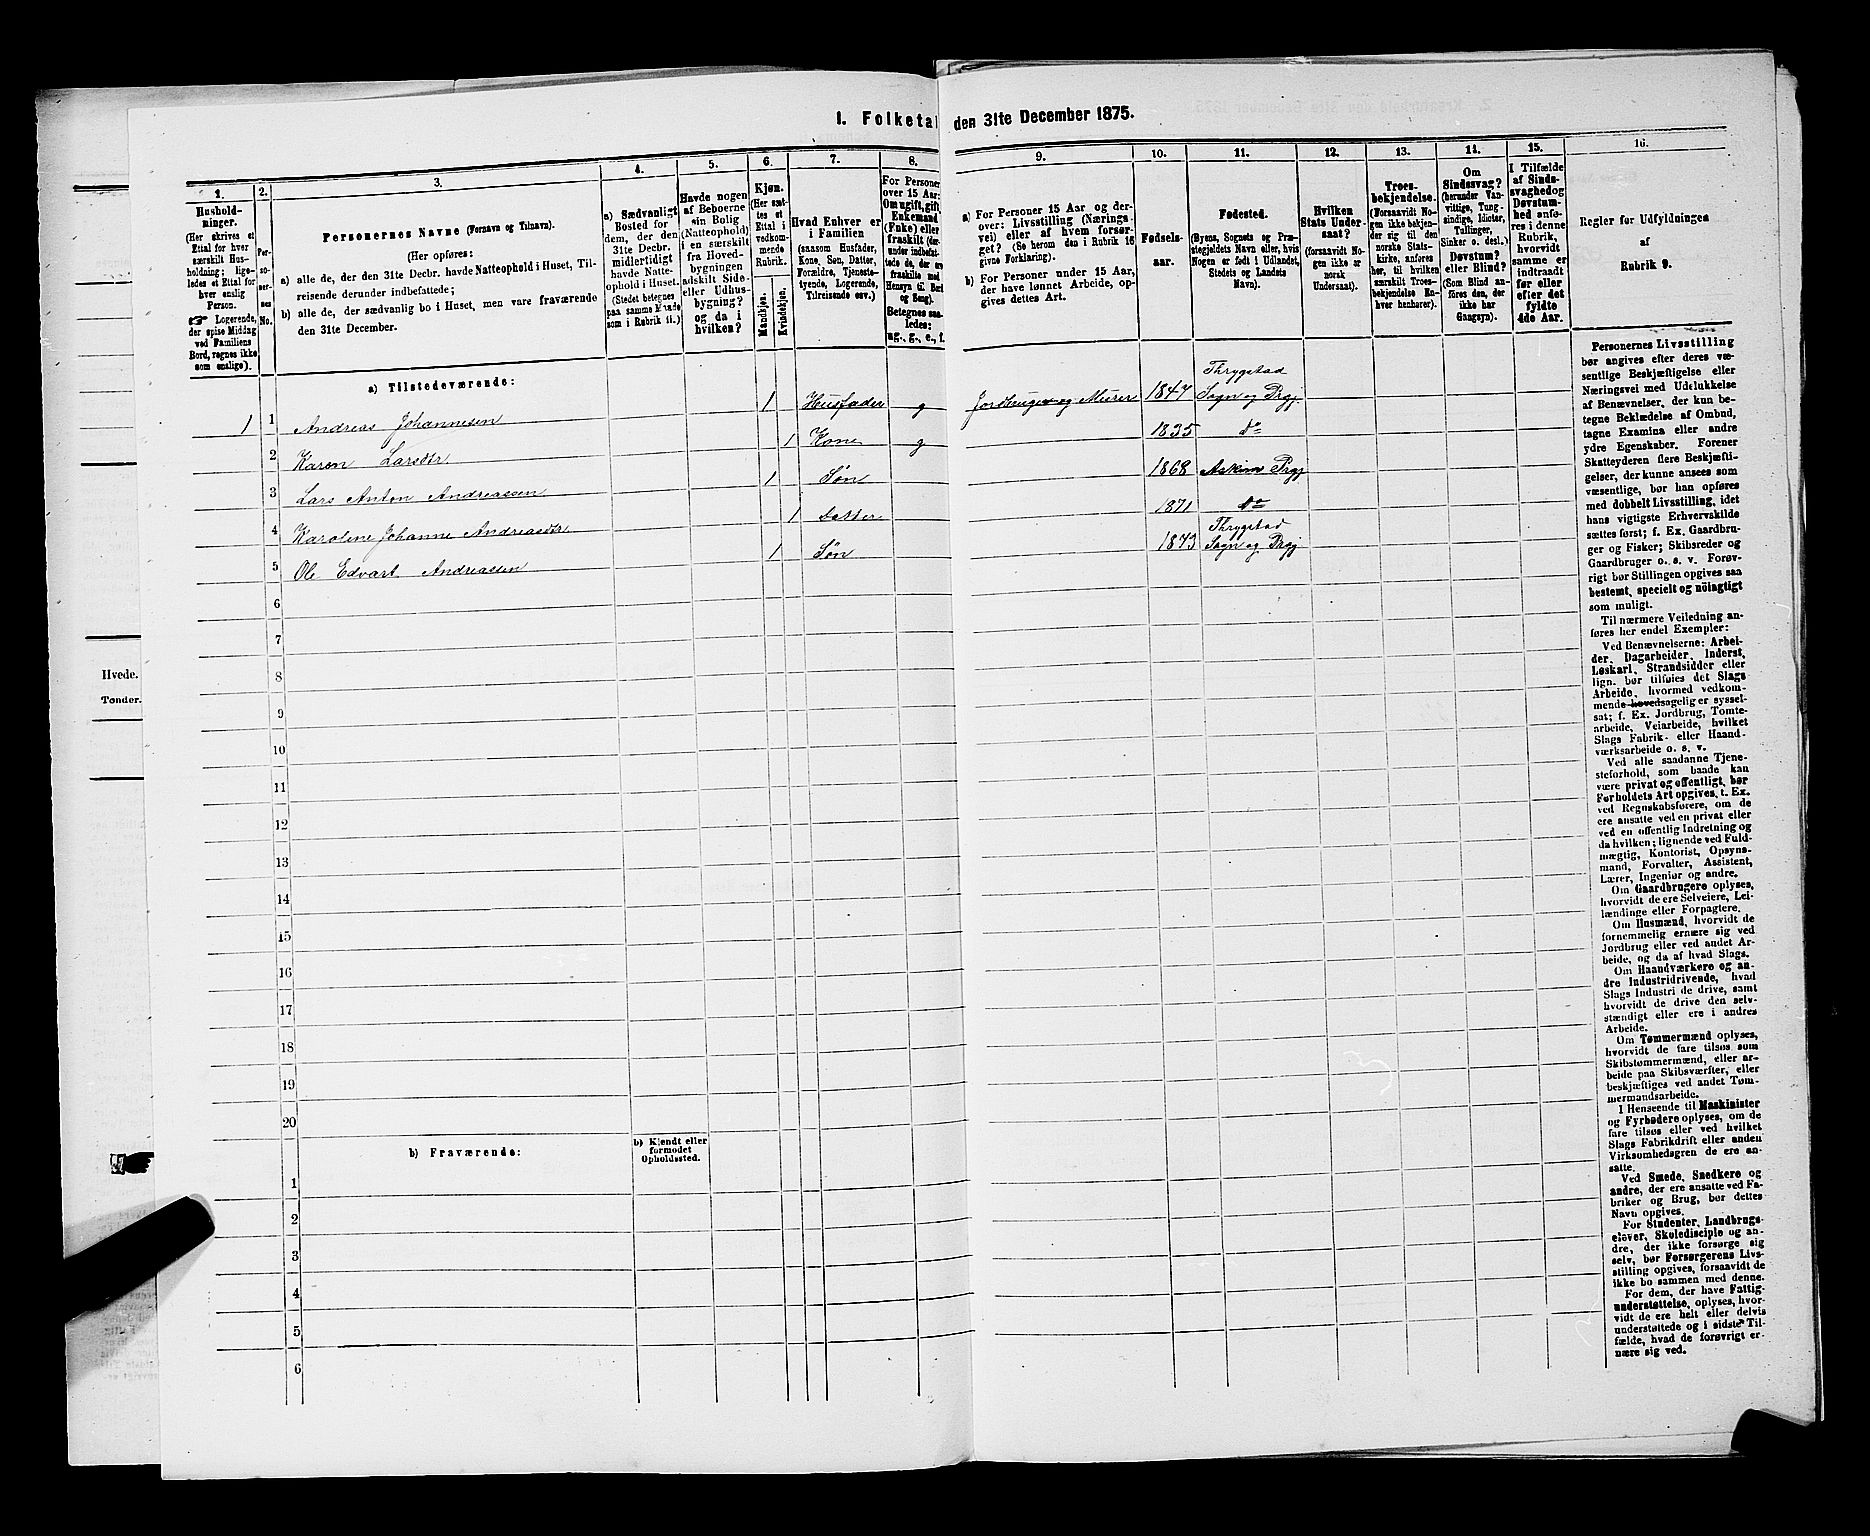 1. Folketal den 31te December 1875.
1.
Hushold-
ninger.
(Her skrives et
Ettal for hver
særskilt Hus-
holdning; lige-
ledes et Ettal for
hver enslig
Person.
☞ Logerende,
der spise Middag
ved Familiens
Bord, regnes ikke
som enslige).
2.
Per-
so-
ner-
nes
No.
3.
Personernes Navne (Fornavn og Tilnavn).
(Her opføres:
a) alle de, der den 31te Decbr. havde Natteophold i Huset, Til-
reisende derunder indbefattede;
b) alle de, der sædvanlig bo i Huset, men vare fraværende
den 31te December.
4.
a) Sædvanligt
Bosted for
dem, der den
31te Decbr.
midlertidigt
havde Natte-
ophold i Huset.
(Stedet betegnes
paa samme Maade
som i Rubrik 11.)
5.
Havde nogen
af Beboerne
sin Bolig
(Natteophold)
i en særskilt
fra Hoved-
bygningen
adskilt Side-
eller Udhus-
bygning?
og da i
hvilken?
6.
Kjøn.
(Her sæt-
tes et
Ettal i
vedkom-
mende
Rubrik.
Mandkjøn.
Kvindekjøn.
7.
Hvad Enhver er
i Familien
(saasom Husfader,
Kone, Søn, Datter,
Forældre, Tjeneste-
tyende, Logerende,
Tilreisende osv.)
8.
For Personer
over 15 Aar:
Om ugift, gift,
Enkemand
(Enke) eller
fraskilt (der-
under indbefat-
tede de, der ere
fraskilte med
Hensyn til Bord
og Seng).
Betegnes saa-
ledes:
ug., g., e., f.
9.
a) For Personer 15 Aar og der-
over: Livsstilling (Nærings-
vei) eller af hvem forsør-
get? (Se herom den i Rubrik 16
givne Forklaring).
b) For Personer under 15 Aar,
der have lønnet Arbeide, op-
gives dettes Art.
10.
Fødsels-
aar.
11.
Fødested.
(Byens, Sognets og Præ-
stegjeldets Navn eller, hvis
Nogen er født i Udlandet,
Stedets og Landets
Navn).
12.
Hvilken
Stats Under-
saat?
(forsaavidt No-
gen ikke er
norsk
Undersaat).
13.
Troes-
bekjendelse.
(Forsaavidt No-
gen ikke bekjen-
der sig til den
norske Stats-
kirke, anføres
her, til hvilken
særskilt Troes-
bekjendelse En-
hver henhører).
14.
Om
Sindssvag?
(herunder Van-
vittige, Tung-
sindige, Idioter,
Tullinger,
Sinker o. desl.)
Døvstum?
eller Blind?
(Som Blind an-
føres den, der
ikke har
Gangsyn).
15.
I Tilfælde
af Sinds-
svaghed og
Døvstum-
hed anfø-
res i denne
Rubrik,
hvorvidt
samme er
indtraadt
før eller
efter det
fyldte
4de Aar.
16.
Regler for Udfyldningen
af
Rubrik 9.
a) Tilstedeværende:
1 1 Andreas Johannesen 1 Husfader g Jordbruger og Murer 1847 Thrygstad Sogn og Prgj.
2 Karen Larsdtr. 1 Kone g 1835 do
3 Lars Anton Andreassen 1 Søn 1868 Askim Prgj
4 Karoline Johanne Andreasdtr. 1 Datter 1871 do
5 Ole Edvart Andreassen 1 Søn 1873 Thrygstad Sogn og Prgj.
6
7
8
9
10
11
12
13
14
15
16
17
18
19
20
b) Fraværende:
b) Kjendt eller
formodet
Opholdssted.
1
2
3
4
5
6
Personernes Livsstilling
bør angives efter deres væ-
sentlige Beskjæftigelse eller
Næringsvei med Udelukkelse
af Benævnelser, der kun be-
tegne Beklædelse af Ombud,
tagne Examina eller andre
ydre Egenskaber. Forener
Skatteyderen flere Beskjæfti-
gelser, der kunne ansees som
væsentlige, bør han opføres
med dobbelt Livsstilling, idet
hans vigtigste Erhvervskilde
sættes først; f. Ex. Gaardbru-
ger og Fisker; Skibsreder og
Gaardbruger o. s. v. Forøv-
rigt bør Stillingen opgives saa
bestemt, specielt og nöiagtigt
som muligt.
Til nærmere Veiledning an-
føres her endel Exempler:
Ved Benævnelserne: Arbei-
der, Dagarbeider, Inderst,
Løskarl, Strandsidder eller
lign. bør tilføies det Slags
Arbeide, hvormed vedkom-
mende hovedsagelig er syssel-
sat; f. Ex. Jordbrug, Tomte-
arbeide, Veiarbeide, hvilket
Slags Fabrik- eller Haand-
værksarbeide o. s. v.
Ved alle saadanne Tjene-
steforhold, som baade kan
være privat og offentligt, bør
Forholdets Art opgives, t. Ex.
ved Regnskabsførere, om de
ere ansatte ved en privat eller
ved en offentlig Indretning og
da hvilken; lignende ved Fuld-
mægtig, Kontorist, Opsyns-
mand, Forvalter, Assistent,
Lærer, Ingeniør og andre.
Om Gaardbrugere oplyses,
hvorvidt de ere Selveiere, Lei-
lændinge eller Forpagtere.
Om Husmænd, hvorvidt de
fornemmelig ernære sig ved
Jordbrug eller ved andet Ar-
beide, og da af hvad Slags.
Om Haandværkere og an-
dre Industridrivende, hvad
Slags Industri de drive, samt
hvorvidt de drive den selv-
stændigt eller ere i andres
Arbeide.
Om Tømmermænd oplyses,
hvorvidt de fare tilsøs som
Skibstømmermænd, eller ar-
beide paa Skibsværfter, eller
beskjæftiges ved andet Tøm-
mermandsarbeide.
I Henseende til Maskinister
og Fyrbødere oplyses, om de
fare tilsøs eller ved hvilket
Slags Fabrikdrift eller anden
Virksomhedsgren de ere an-
satte.
Ved Smede, Snedkere og
andre, der ere ansatte ved Fa-
briker og Brug, bør dettes
Navn opgives.
For Studenter, Landbrugs-
elever, Skoledisciple og an-
dre, der ikke forsørge sig
selv, bør Forsørgerens Livs-
stilling opgives, forsaavidt de
ikke bo sammen med denne.
For dem, der have Fattig-
understøttelse, oplyses, hvor-
vidt de ere helt eller delvis
understøttede og i sidste Til-
fælde, hvad de forøvrigt er-
nære sig ved.
Hvede.
Tønder.